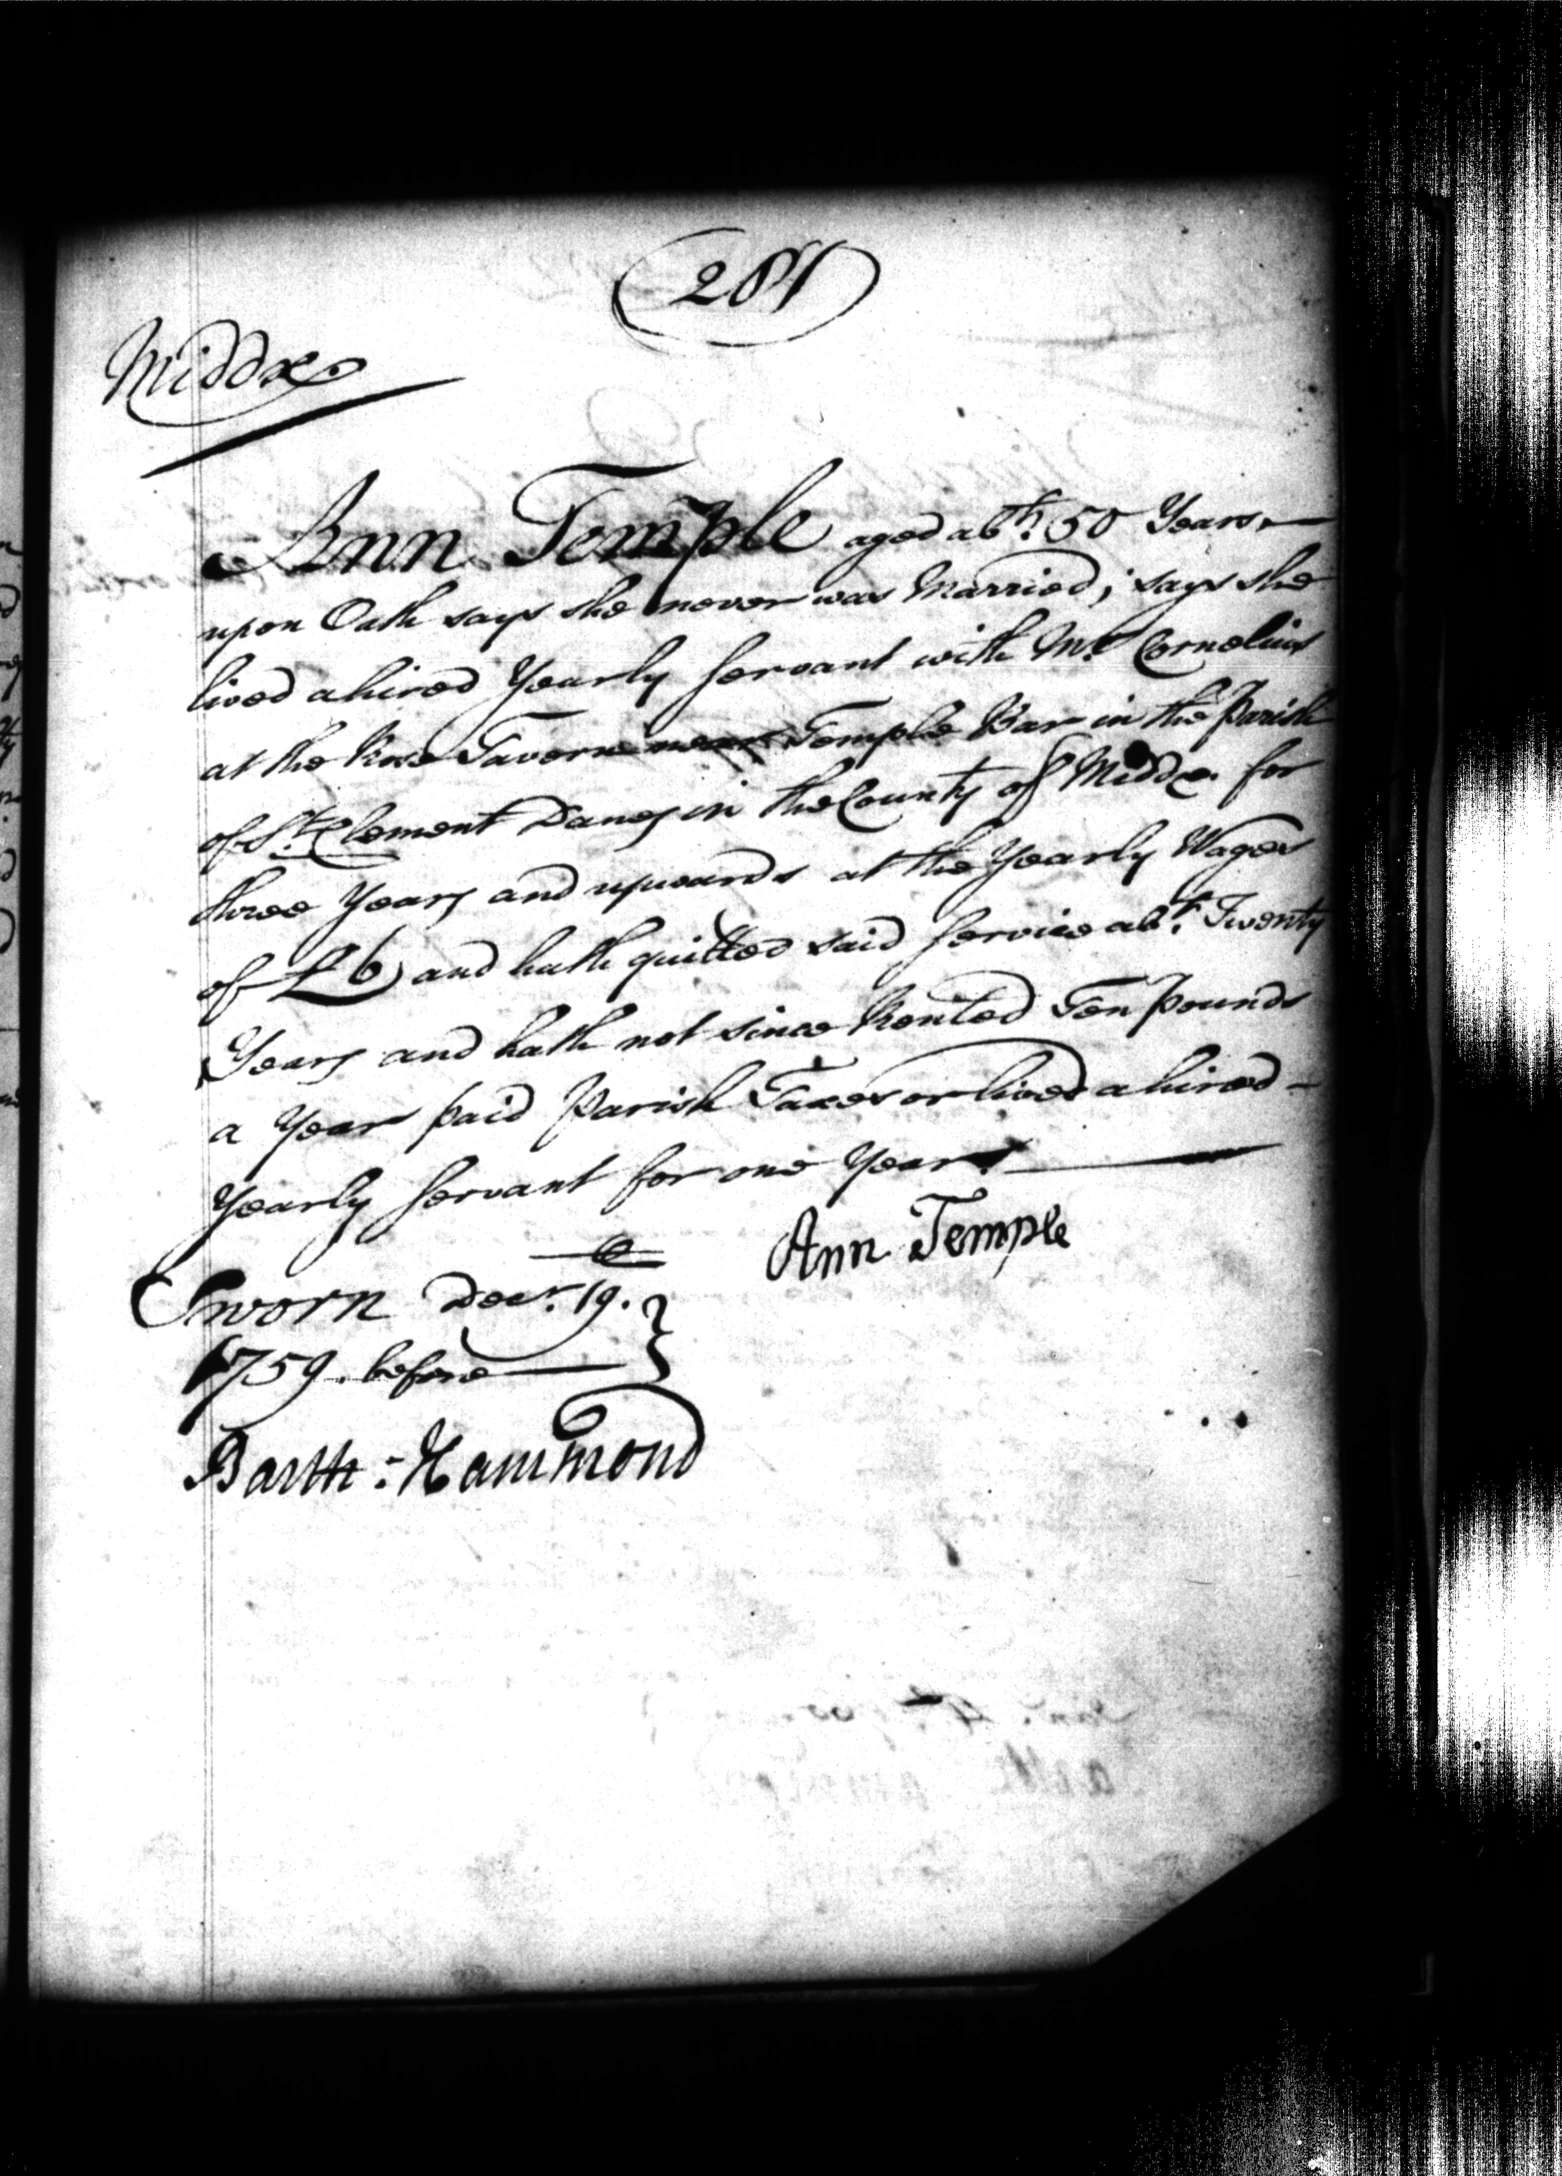 281
Middx.
Ann Temple aged abt. 50 Years
upon Oath says she never was Married; says she
lived a hired Yearly Servant with Mr. Cornelius
at the Rose Tavern near Temple Bar in the Parish
of St. Clement Danes in the County of Middx. for
three Years and upwards at the Yearly Wages
of £6 and hath quitted said Service abt. Twenty
Years and hath not since Rented Ten Pounds
a Year paid Parish Taxes or lived a hired
Yearly Servant for one Year
Ann Temple
Sworn Decr. 19.
1759. before
Barth: Hammond